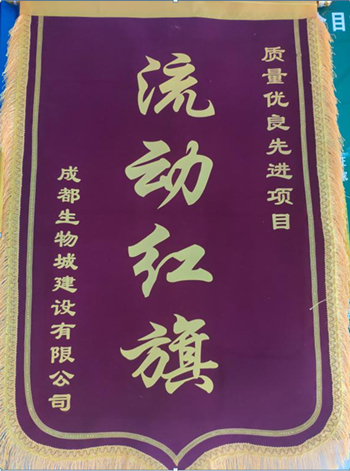 质量优良先进项目
流动红旗
成都生物城建设有限公司
目